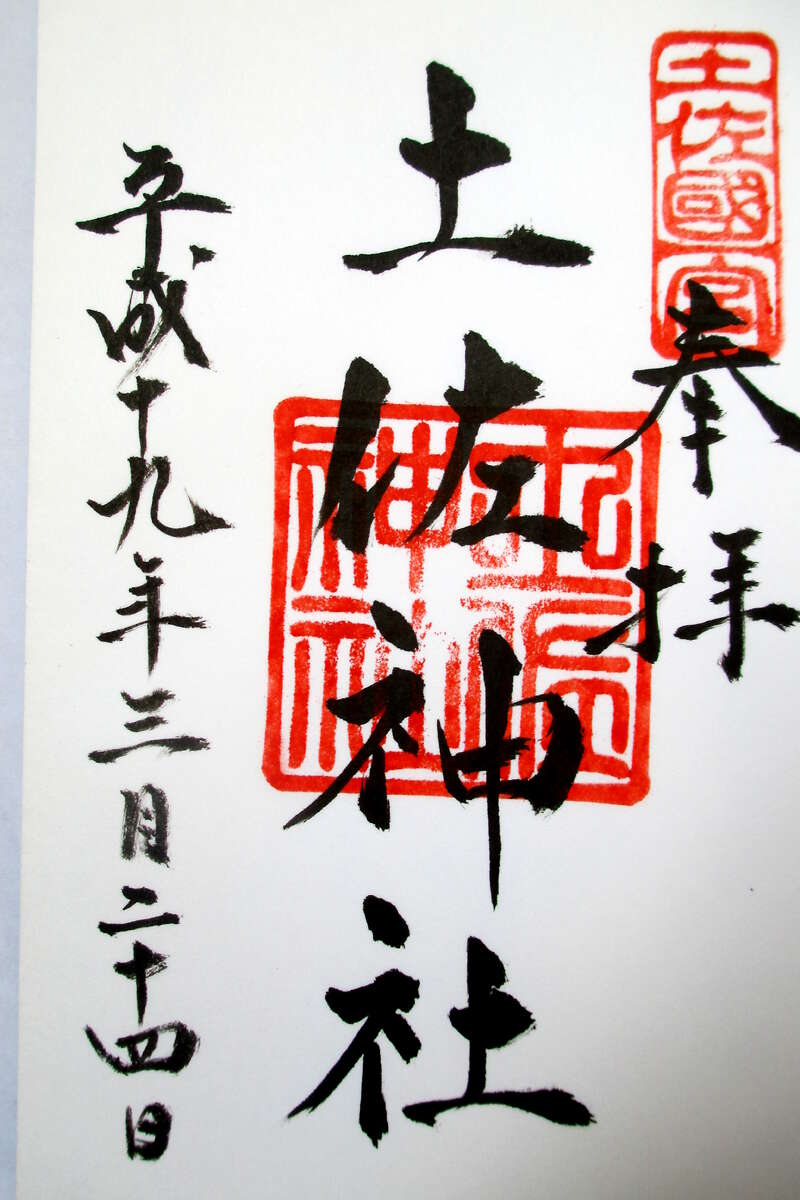 土佐國一宮
奉拝
土佐神社
土佐神社
平成十九年三月二十四日